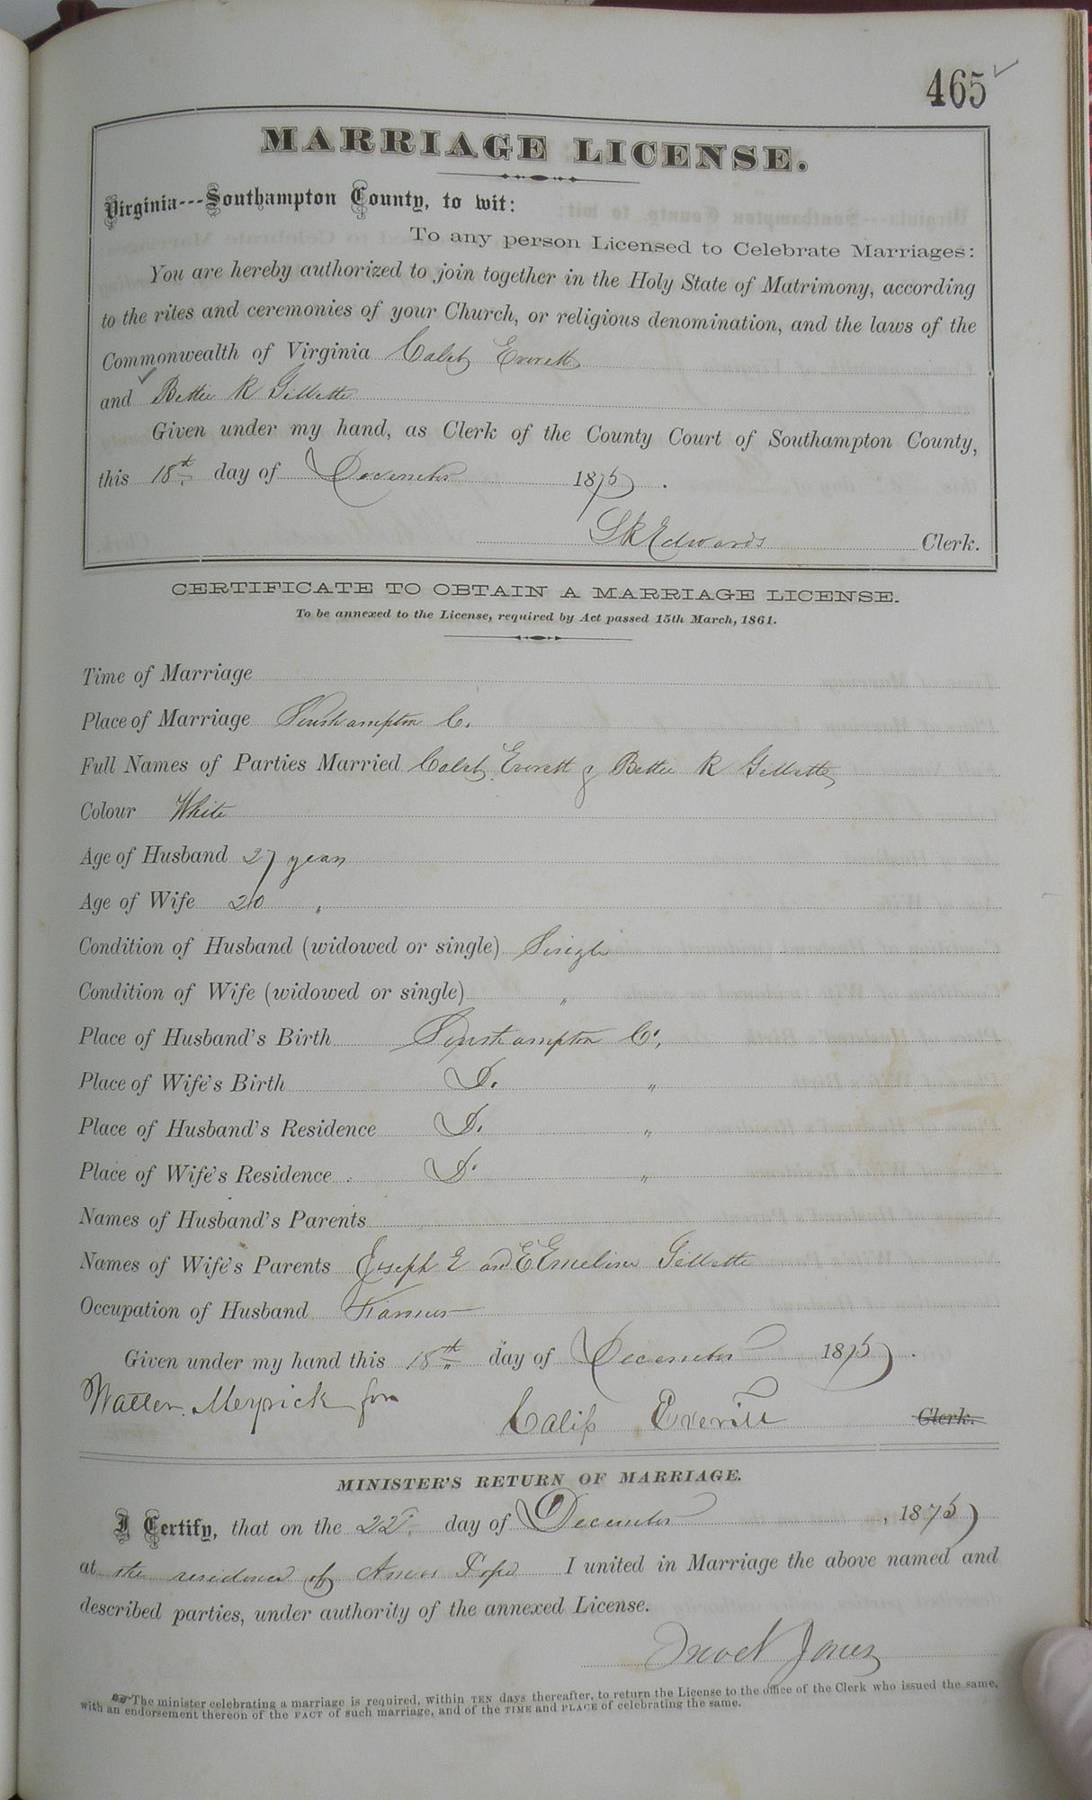 465
MARRIAGE LICENSE.
Virginia---Southampton County, to wit:
To any person Licensed to Celebrate Marriages:
You are hereby authorized to join together in the Holy State of Matrimony, according
to the rites and ceremonies of your Church, or religious denomination, and the laws of the
Commonwealth of Virginia Caleb Everett
and Bettie R Gillette
Given under my hand, as Clerk of the County Court of Southampton County,
this 18th day of December 1875.
L R Edwards Clerk.
CERTIFICATE TO OBTAIN A MARRIAGE LICENSE.
To be annexed to the License, required by Act passed 15th March, 1861.
Time of Marriage
Place of Marriage Southampton Co.
Full Names of Parties Married Caleb Everett & Bettie R Gillette
Colour White
Age of Husband 27 years
Age of Wife 20 "
Condition of Husband (widowed or single) Single
Condition of Wife (widowed or single) "
Place of Husband's Birth Southampton Co.
Place of Wife's Birth D. "
Place of Husband's Residence D. "
Place of Wife's Residence D. "
Names of Husband's Parents
Names of Wife's Parents Joseph E and E Emeline Gillette
Occupation of Husband Farmer
Given under my hand this 18th day of December 1875.
Walter Meyrick for
Calib Everitt Clerk.
MINISTER'S RETURN OF MARRIAGE.
I Certify, that on the 22d. day of December, 1875
at the residence of Pope I united in Marriage the above named and
described parties, under authority of the annexed License.
Jones
The minister celebrating a marriage is required, within TEN days thereafter, to return the License to the office of the Clerk who issued the same,
with an endorsement thereon of the FACT of such marriage, and of the TIME and PLACE of celebrating the same.